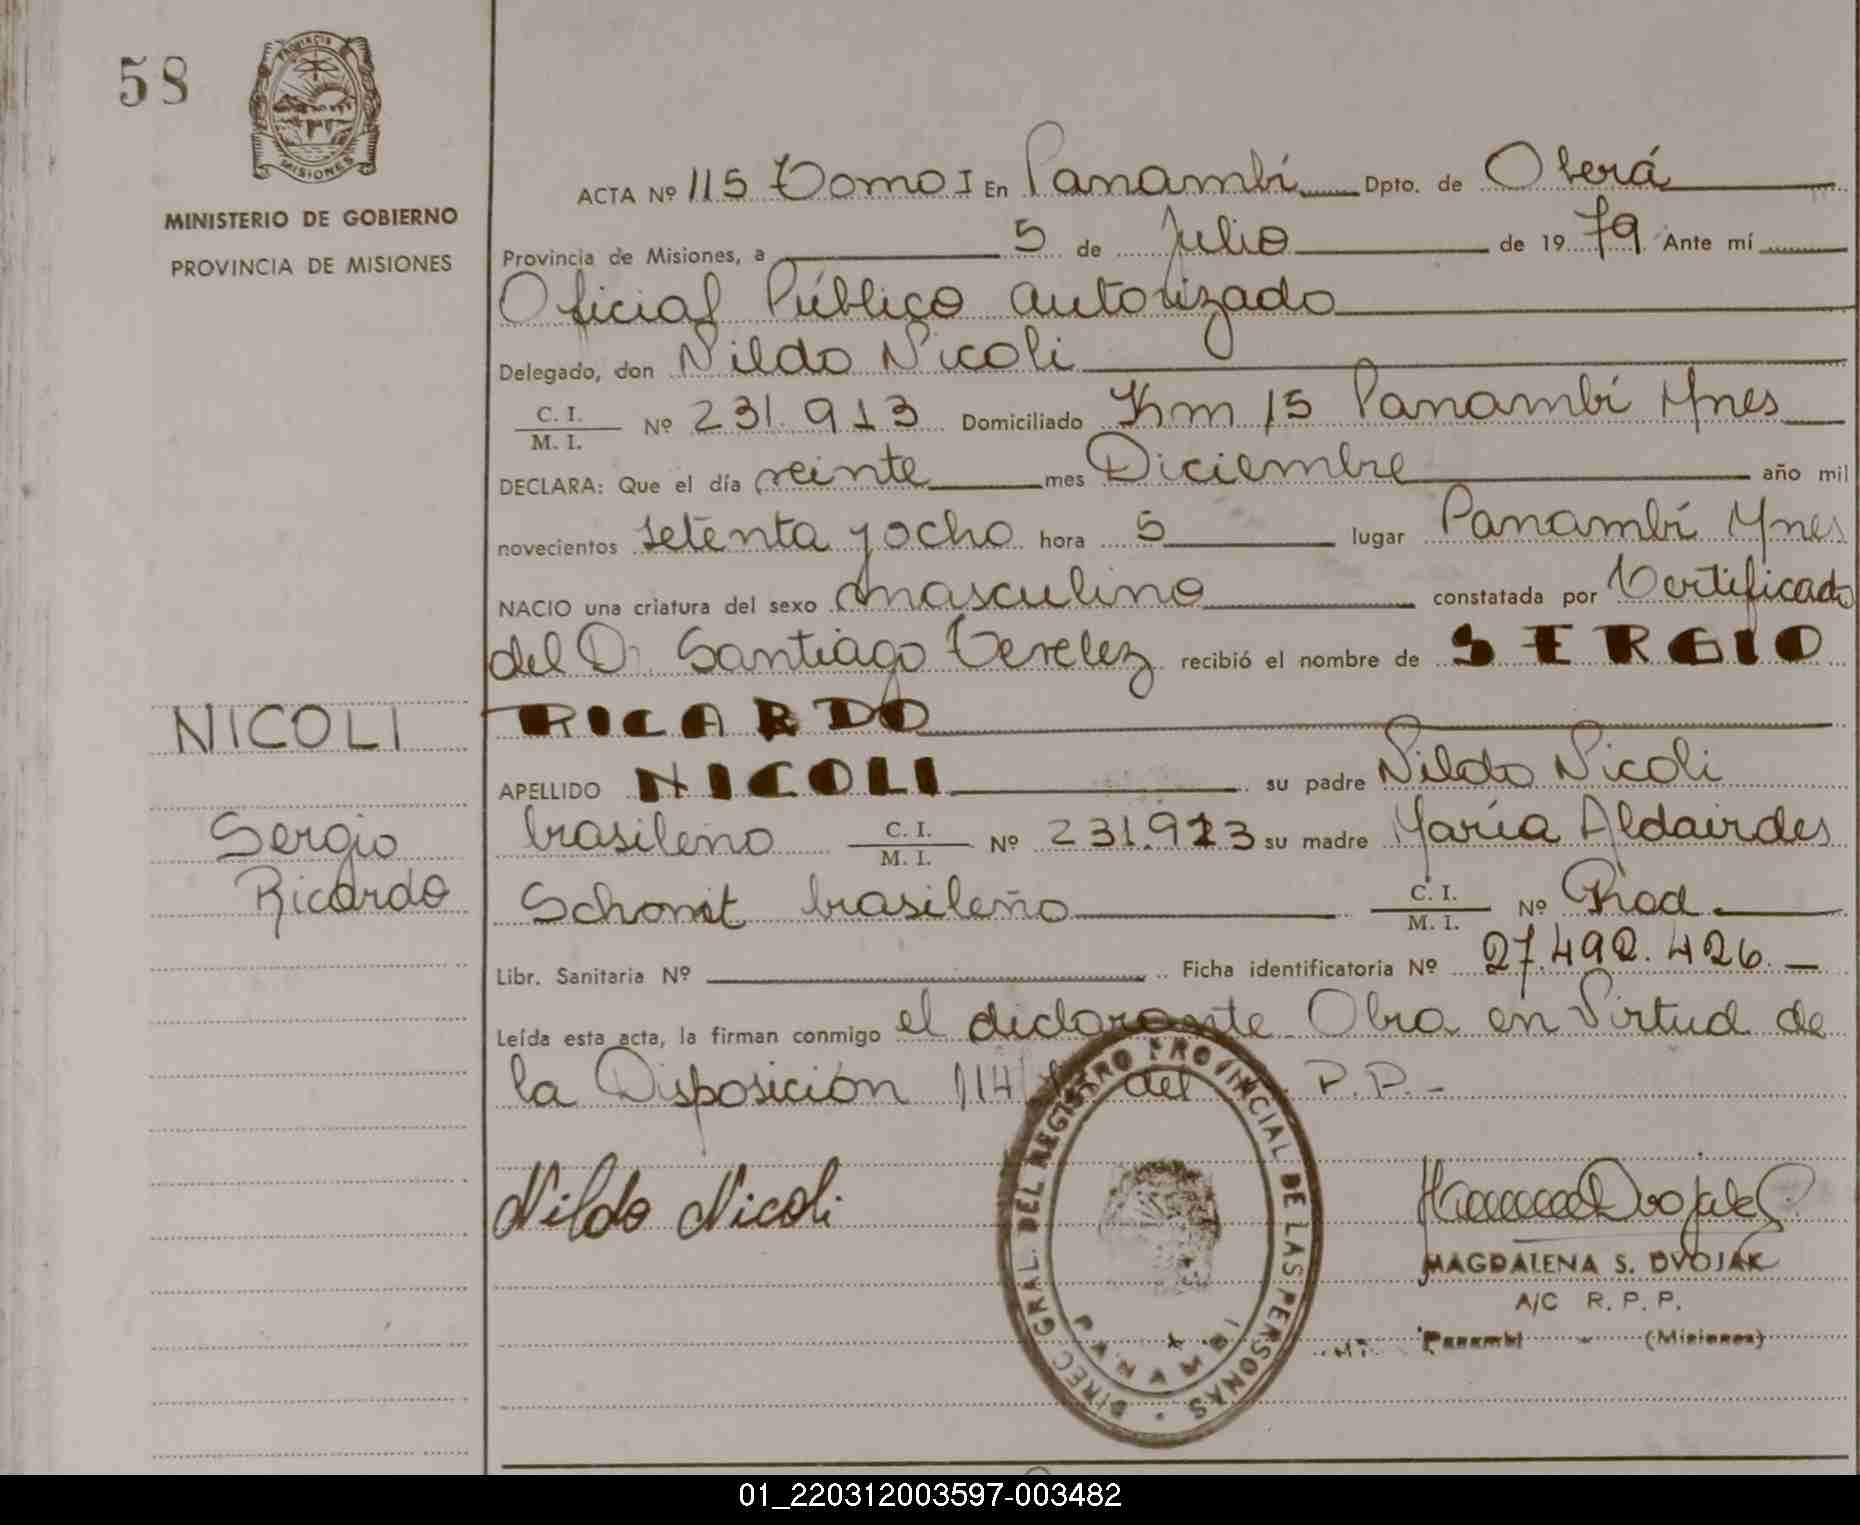 58
PROVINCIA
MISIONES
MINISTERIO DE GOBIERNO
PROVINCIA DE MISIONES
ACTA Nº 115 Tomo I En Panambí Dpto. de Oberá
Provincia de Misiones, a 5 de Julio de 1979 Ante mí
Oficial Público autorizado
Delegado, don Nildo Nicoli
C. I. / M. I. Nº 231.913 Domiciliado Km 15 Panambí Mnes
DECLARA: Que el día veinte mes Diciembre año mil
novecientos setenta y ocho hora 5 lugar Panambí Mnes
NACIO una criatura del sexo masculino constatada por Certificado
del Dr. Santiago recibió el nombre de SERGIO
NICOLI
RICARDO
APELLIDO NICOLI su padre Nildo Nicoli
Sergio
brasileño C. I. / M. I. Nº 231.913 su madre María Aldairdes
Ricardo
brasileño C. I. / M. I. Nº
Libr. Sanitaria Nº Ficha identificatoria Nº 27.492.426.
Leída esta acta, la firman conmigo el declarante Obra en Virtud de
la Disposición 114 del P.P.-
Nildo Nicoli
DIREC. GRAL. DEL REGISTRO PROVINCIAL DE LAS PERSONAS
PANAMBI
MAGDALENA S. DVOJAK
A/C R. P. P.
Panambí (Misiones)
01_220312003597-003482